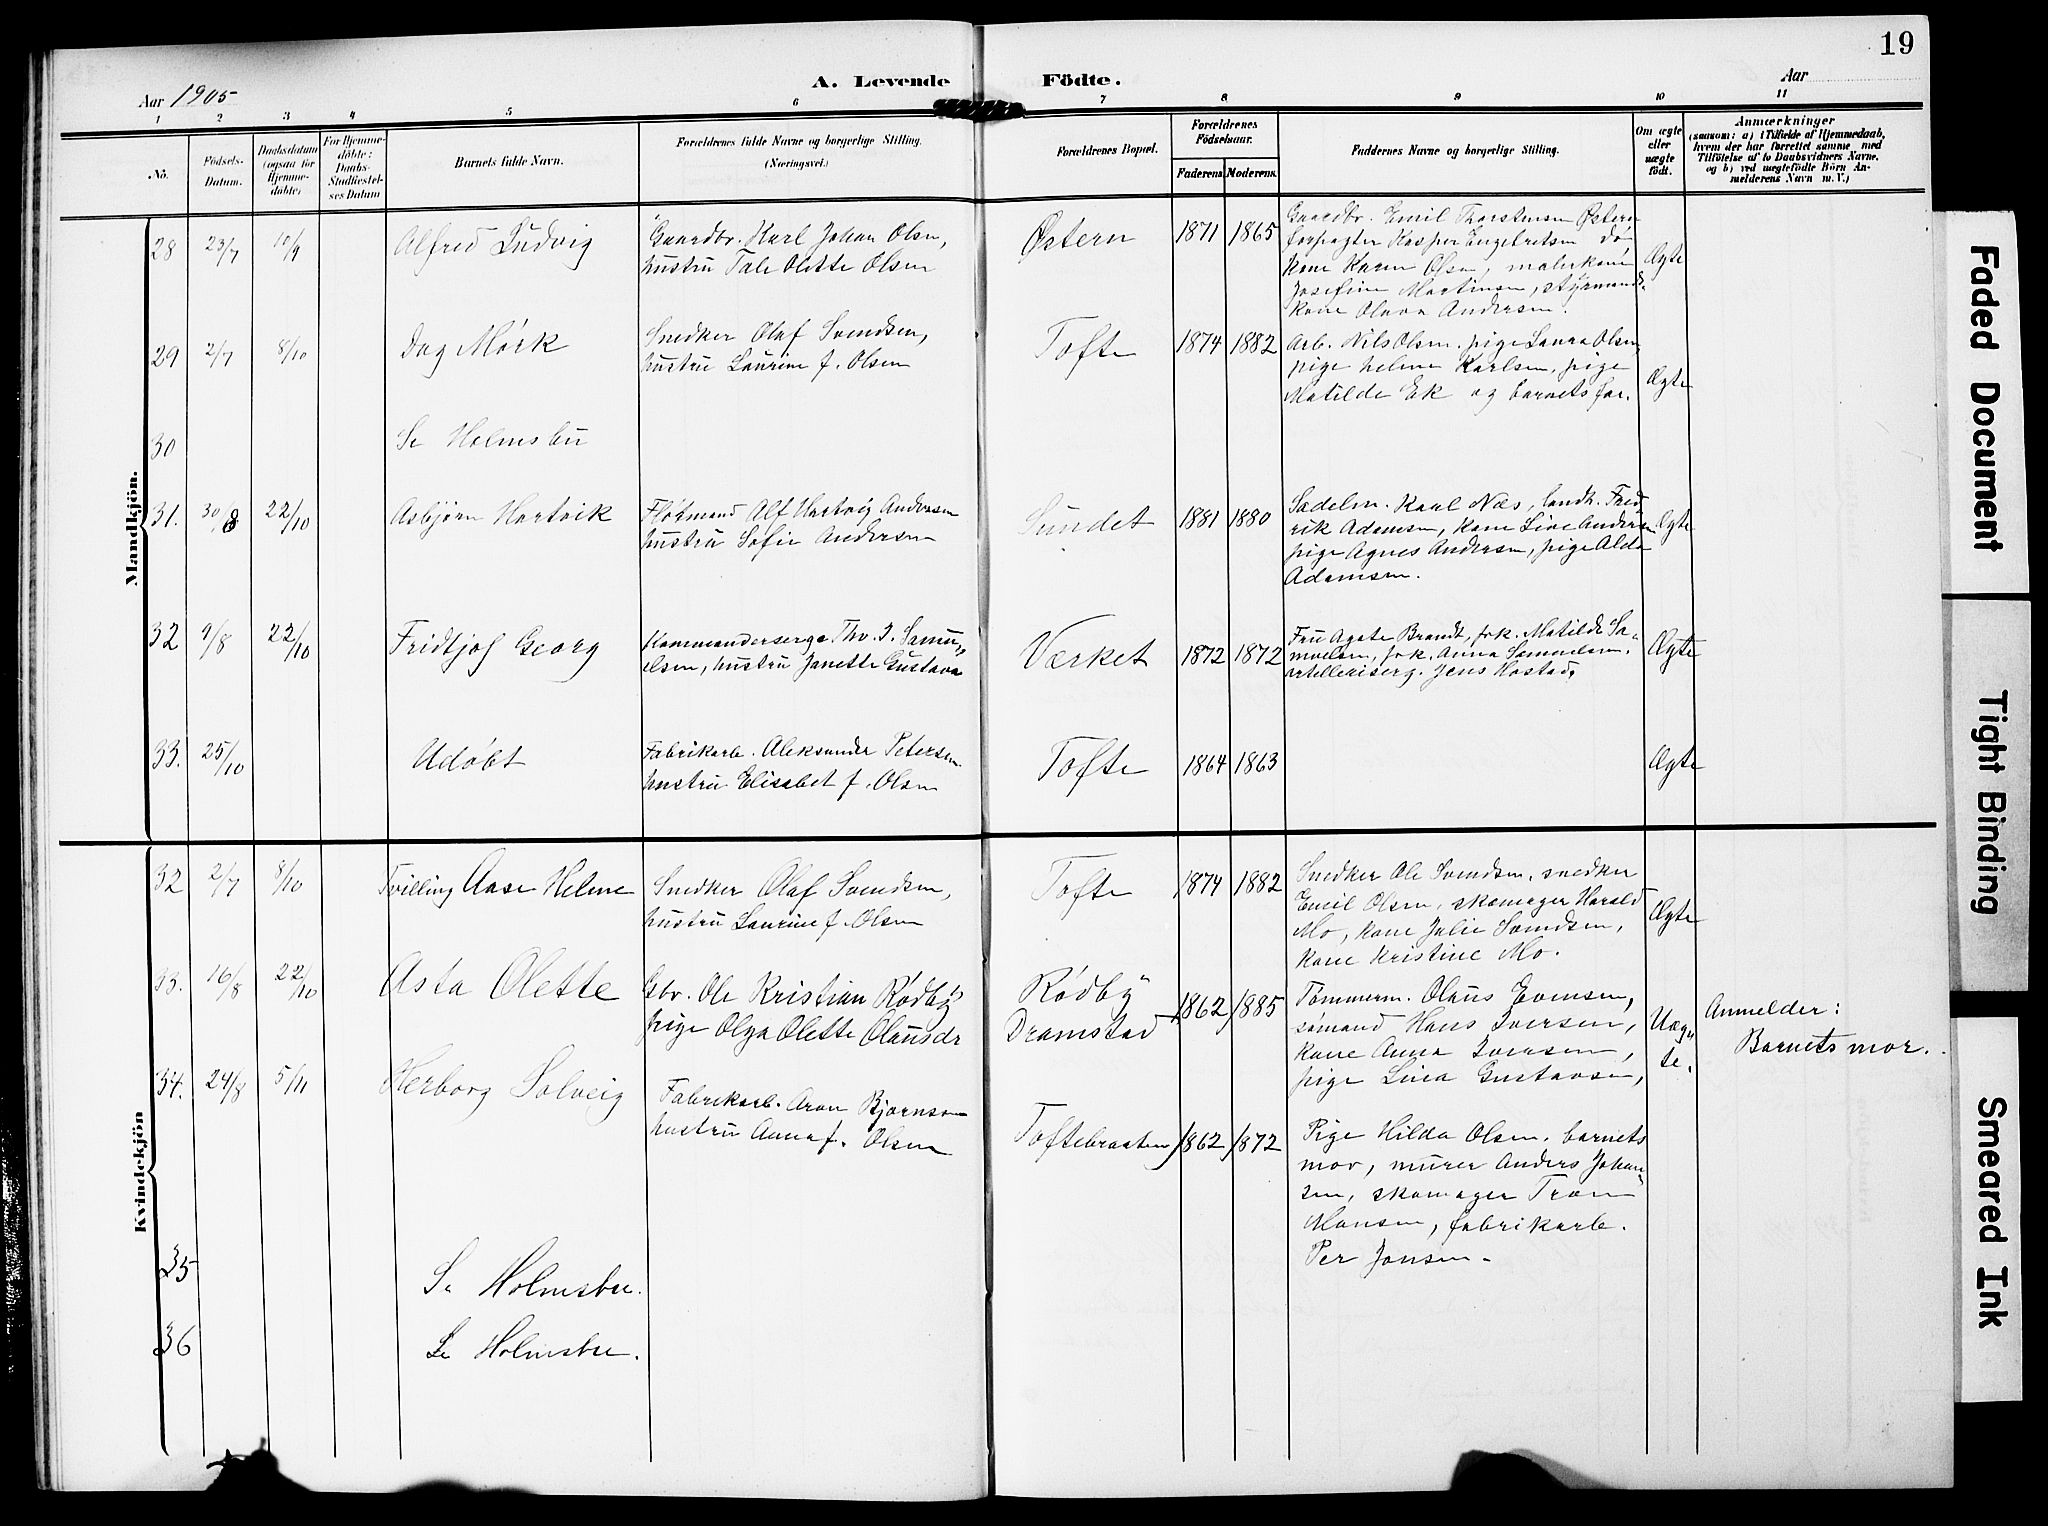 19
A. Levende Födte.
Aar 1905
Aar
1 2 3 4 5 6 7 8 9 10 11
No.
Födsels-Datum.
Daabsdatum (ogsaa for Hjemme-döbte)
For Hjemme-döbte: Daabs-Stadfæstel-ses Datum
Barnets fulde Navn.
Forældrenes fulde Navne og borgerlige Stilling.
(Næringsvei.)
Forældrenes Bopæl.
Forældrenes Födselsaar.
Faderens Moderens.
Faddernes Navne og borgerlige Stilling.
Om ægte eller uægte födt.
Anmærkninger
(saasom: a) i Tilfælde af Hjemmedaab,
hvem der har forrettet samme, med
Tilföielse af to Daabsvidners Navne,
og b) ved uægtefödte Börn An-
melderens Navn m. V.)
Mandkjön.
28 23/7 10/9 Alfred Ludvig
Gaardbr. Karl Johan Olsen,
hustru Tale Olette Olsen
Østern 1871 1865
Gaardbr. Emil Thorstensen Østern
forpagter Kasper Engebretsen
kone Karen Olsen, malerkone
Josefine Martinsen, styrmands-
kone Olava Andersen.
Ægte
29 2/7 8/10 Dag Mørk
Snedker Olaf Svendsen,
hustru Laurine f. Olsen
Tofte 1874 1882
Arb. Nils Olsen, pige Laura Olsen,
pige Helene Karlsen, pige
Matilde Ek og barnets far.
Ægte
30 Se Holmsbu
31. 30/8 22/10 Asbjørn Hartvik
Fløtmand Alf Hartvig Andersen
hustru Sofie Andersen
Sundet 1881 1880
Sadelm. Karl Næs, landh. Fred
rik Adamsen, kone Live Andersen
pige Agnes Andersen, pige Alda
Adamsen.
Ægte
32 9/8 22/10 Fridtjof Georg
Kommanderserge Thv. J. Samu-
elsen, hustru Janette Gustava
Værket 1872 1872
Fru Agate Brandt, frk. Matilde Sa-
muelsen, frk. Anna Samuelsen.
artelleriserg. Jens Hostad.
Ægte
33. 25/10 Udøbt
Fabrikarb. Aleksander Petersen
hustru Elisabet f. Olsen
Tofte 1864 1863
Ægte
Kvindekjön
32 2/7 8/10 Tvilling Aase Helene
Snedker Olaf Svendsen,
hustru Laurine f. Olsen
Tofte 1874 1882
Snedker Ole Svendsen, snedker
Emil Olsen, skomager Harald
Mo, kone Julie Svendsen,
kone Kristine Mo.
Ægte
33. 16/8 22/10 Asta Olette
Gbr. Ole Kristian Rødby
pige Olga Olette Olausdr
Rødby
Dramstad
1862 1885
Tømmerm. Olaus Evensen,
sømand Hans Iversen,
kone Anna Iversen,
pige Lina Gustavsen,
Uæg-
te.
Anmelder:
Barnets mor.
34. 24/8 5/11 Herborg Solveig
Fabrikarb. Aron Bjørnson
hustru Anna f. Olsen
Toftebraaten 1862 1872
Pige Hilda Olsen, barnets
mor, murer Anders Johan-
sen, skomager Tron
Hansen, fabrikarb.
Per Jonsen.
35 Se Holmsbu.
36 Se Holmsbu.
Faded Document
Tight Binding
Smeared Ink